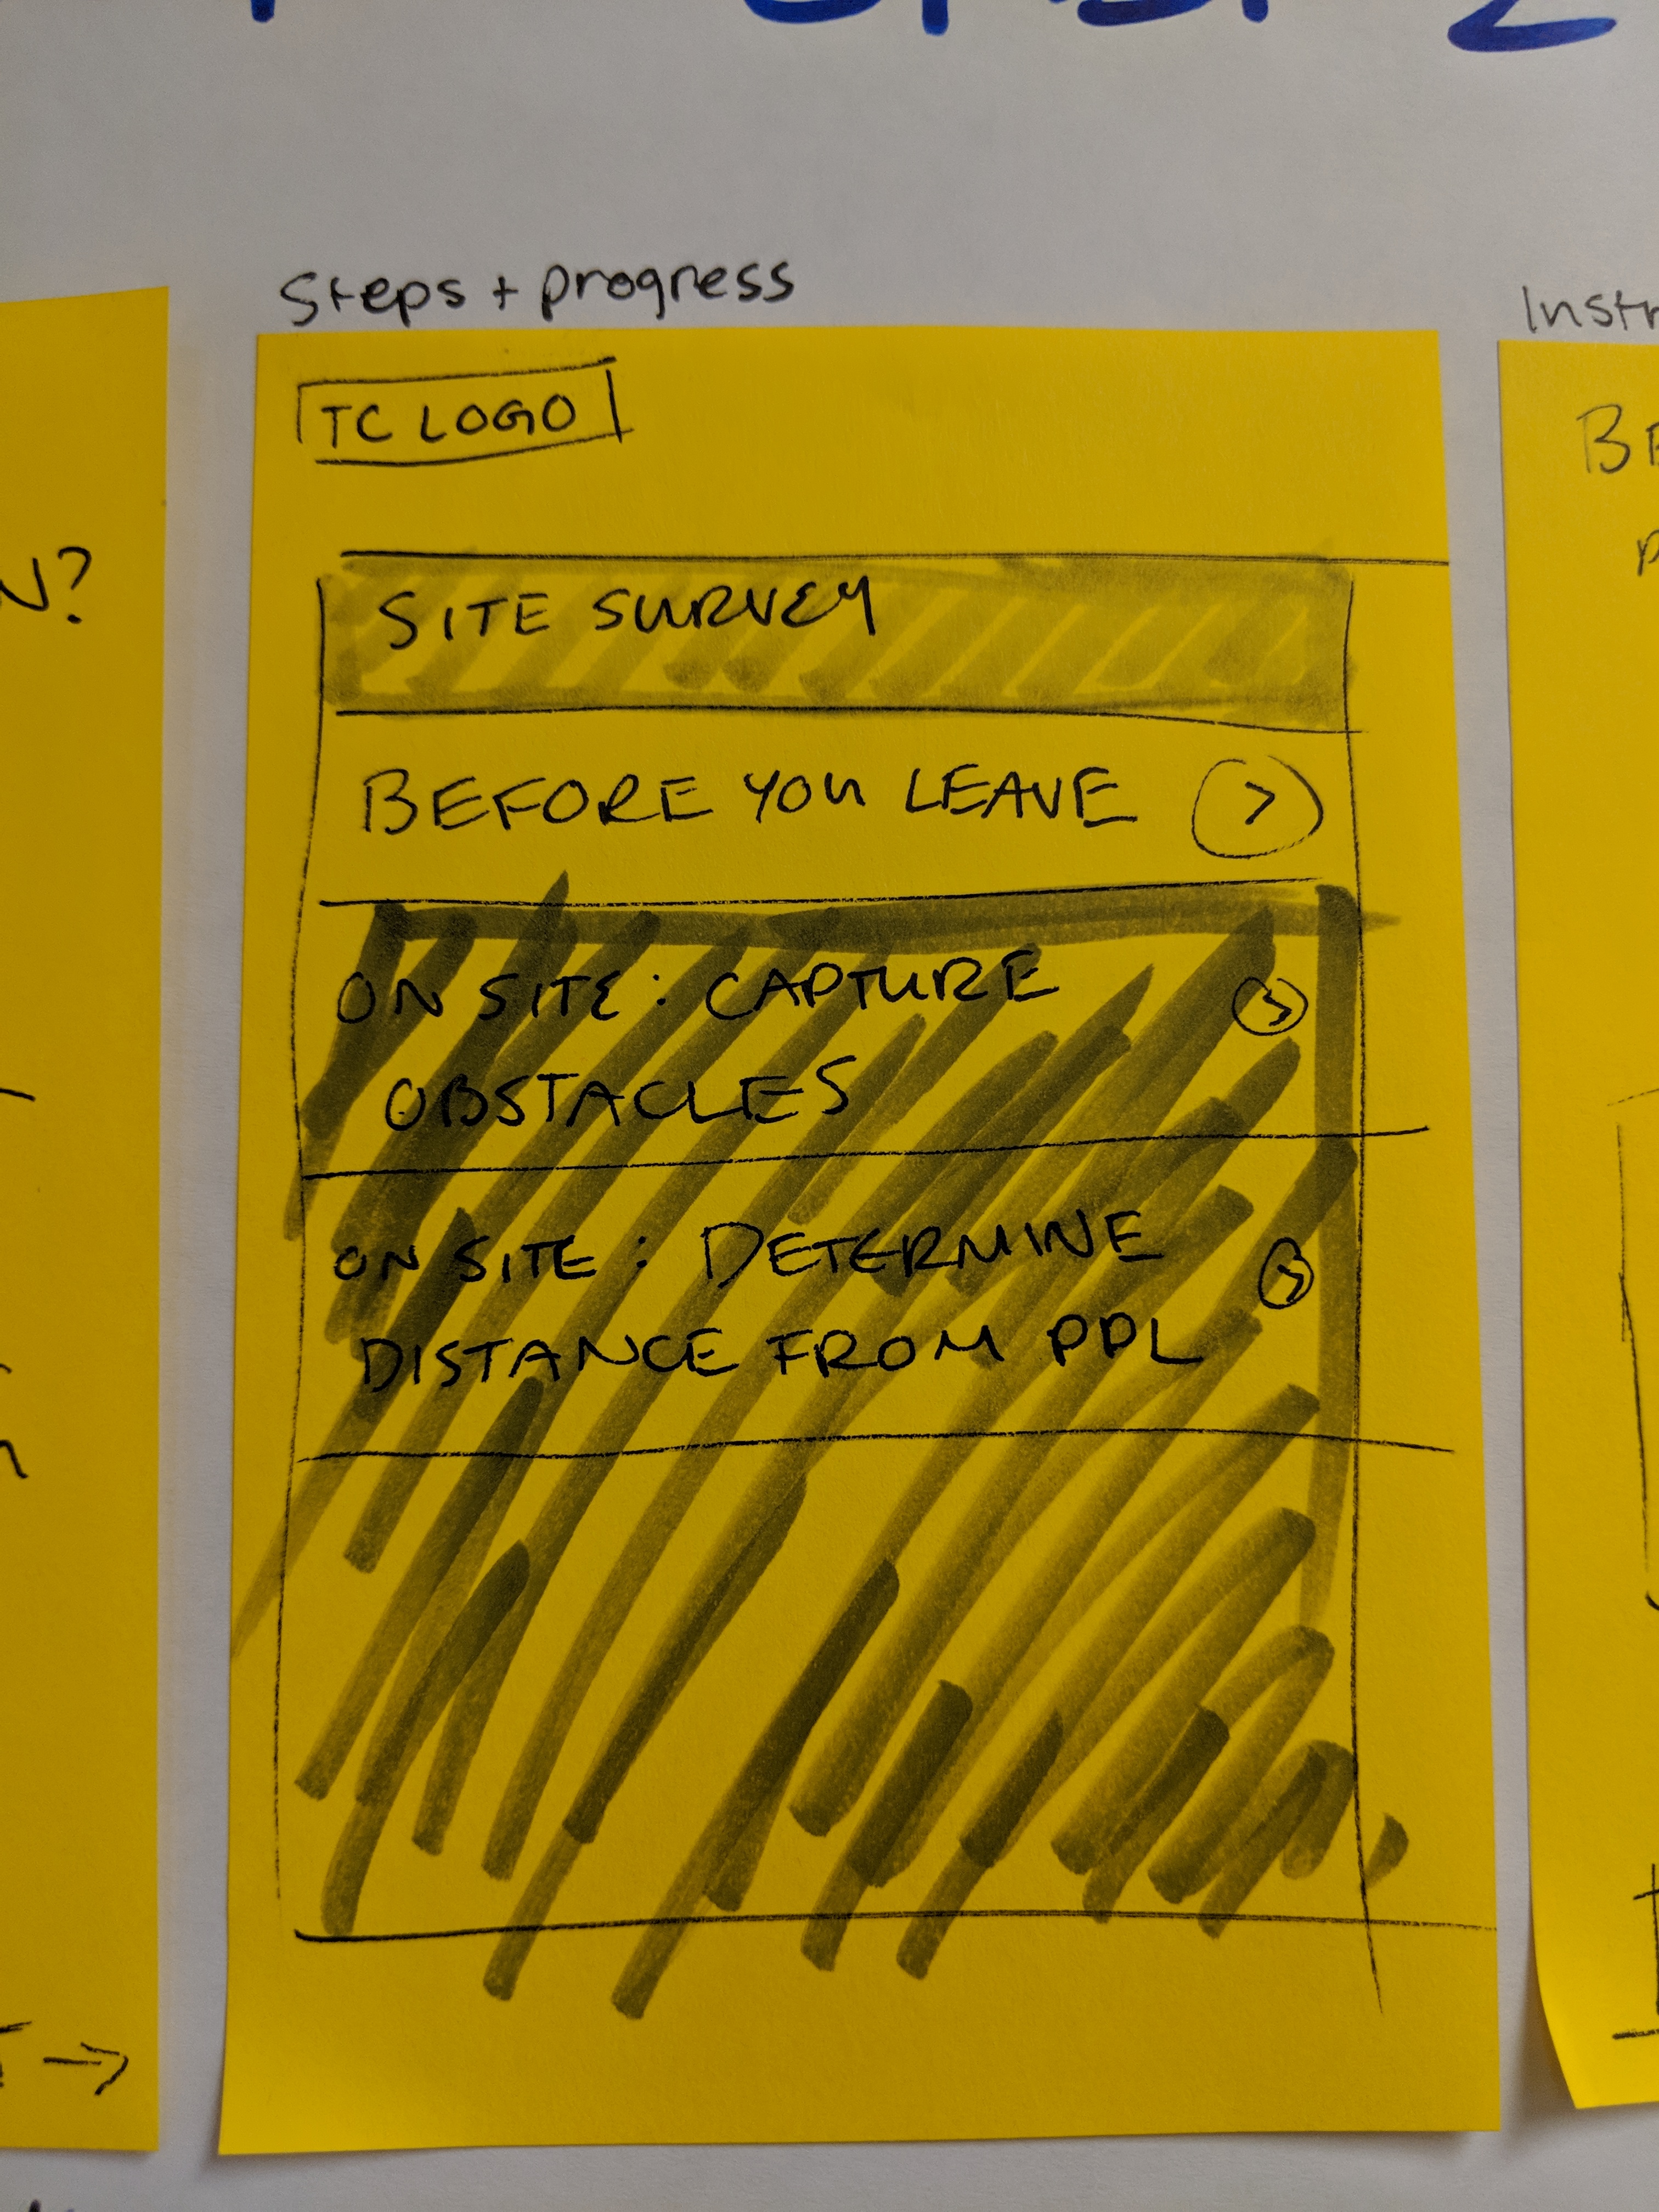 Steps + progress
TC LOGO
SITE SURVEY
BEFORE YOU LEAVE >
ON SITE: CAPTURE >
OBSTACLES
ON SITE: DETERMINE >
DISTANCE FROM PPL